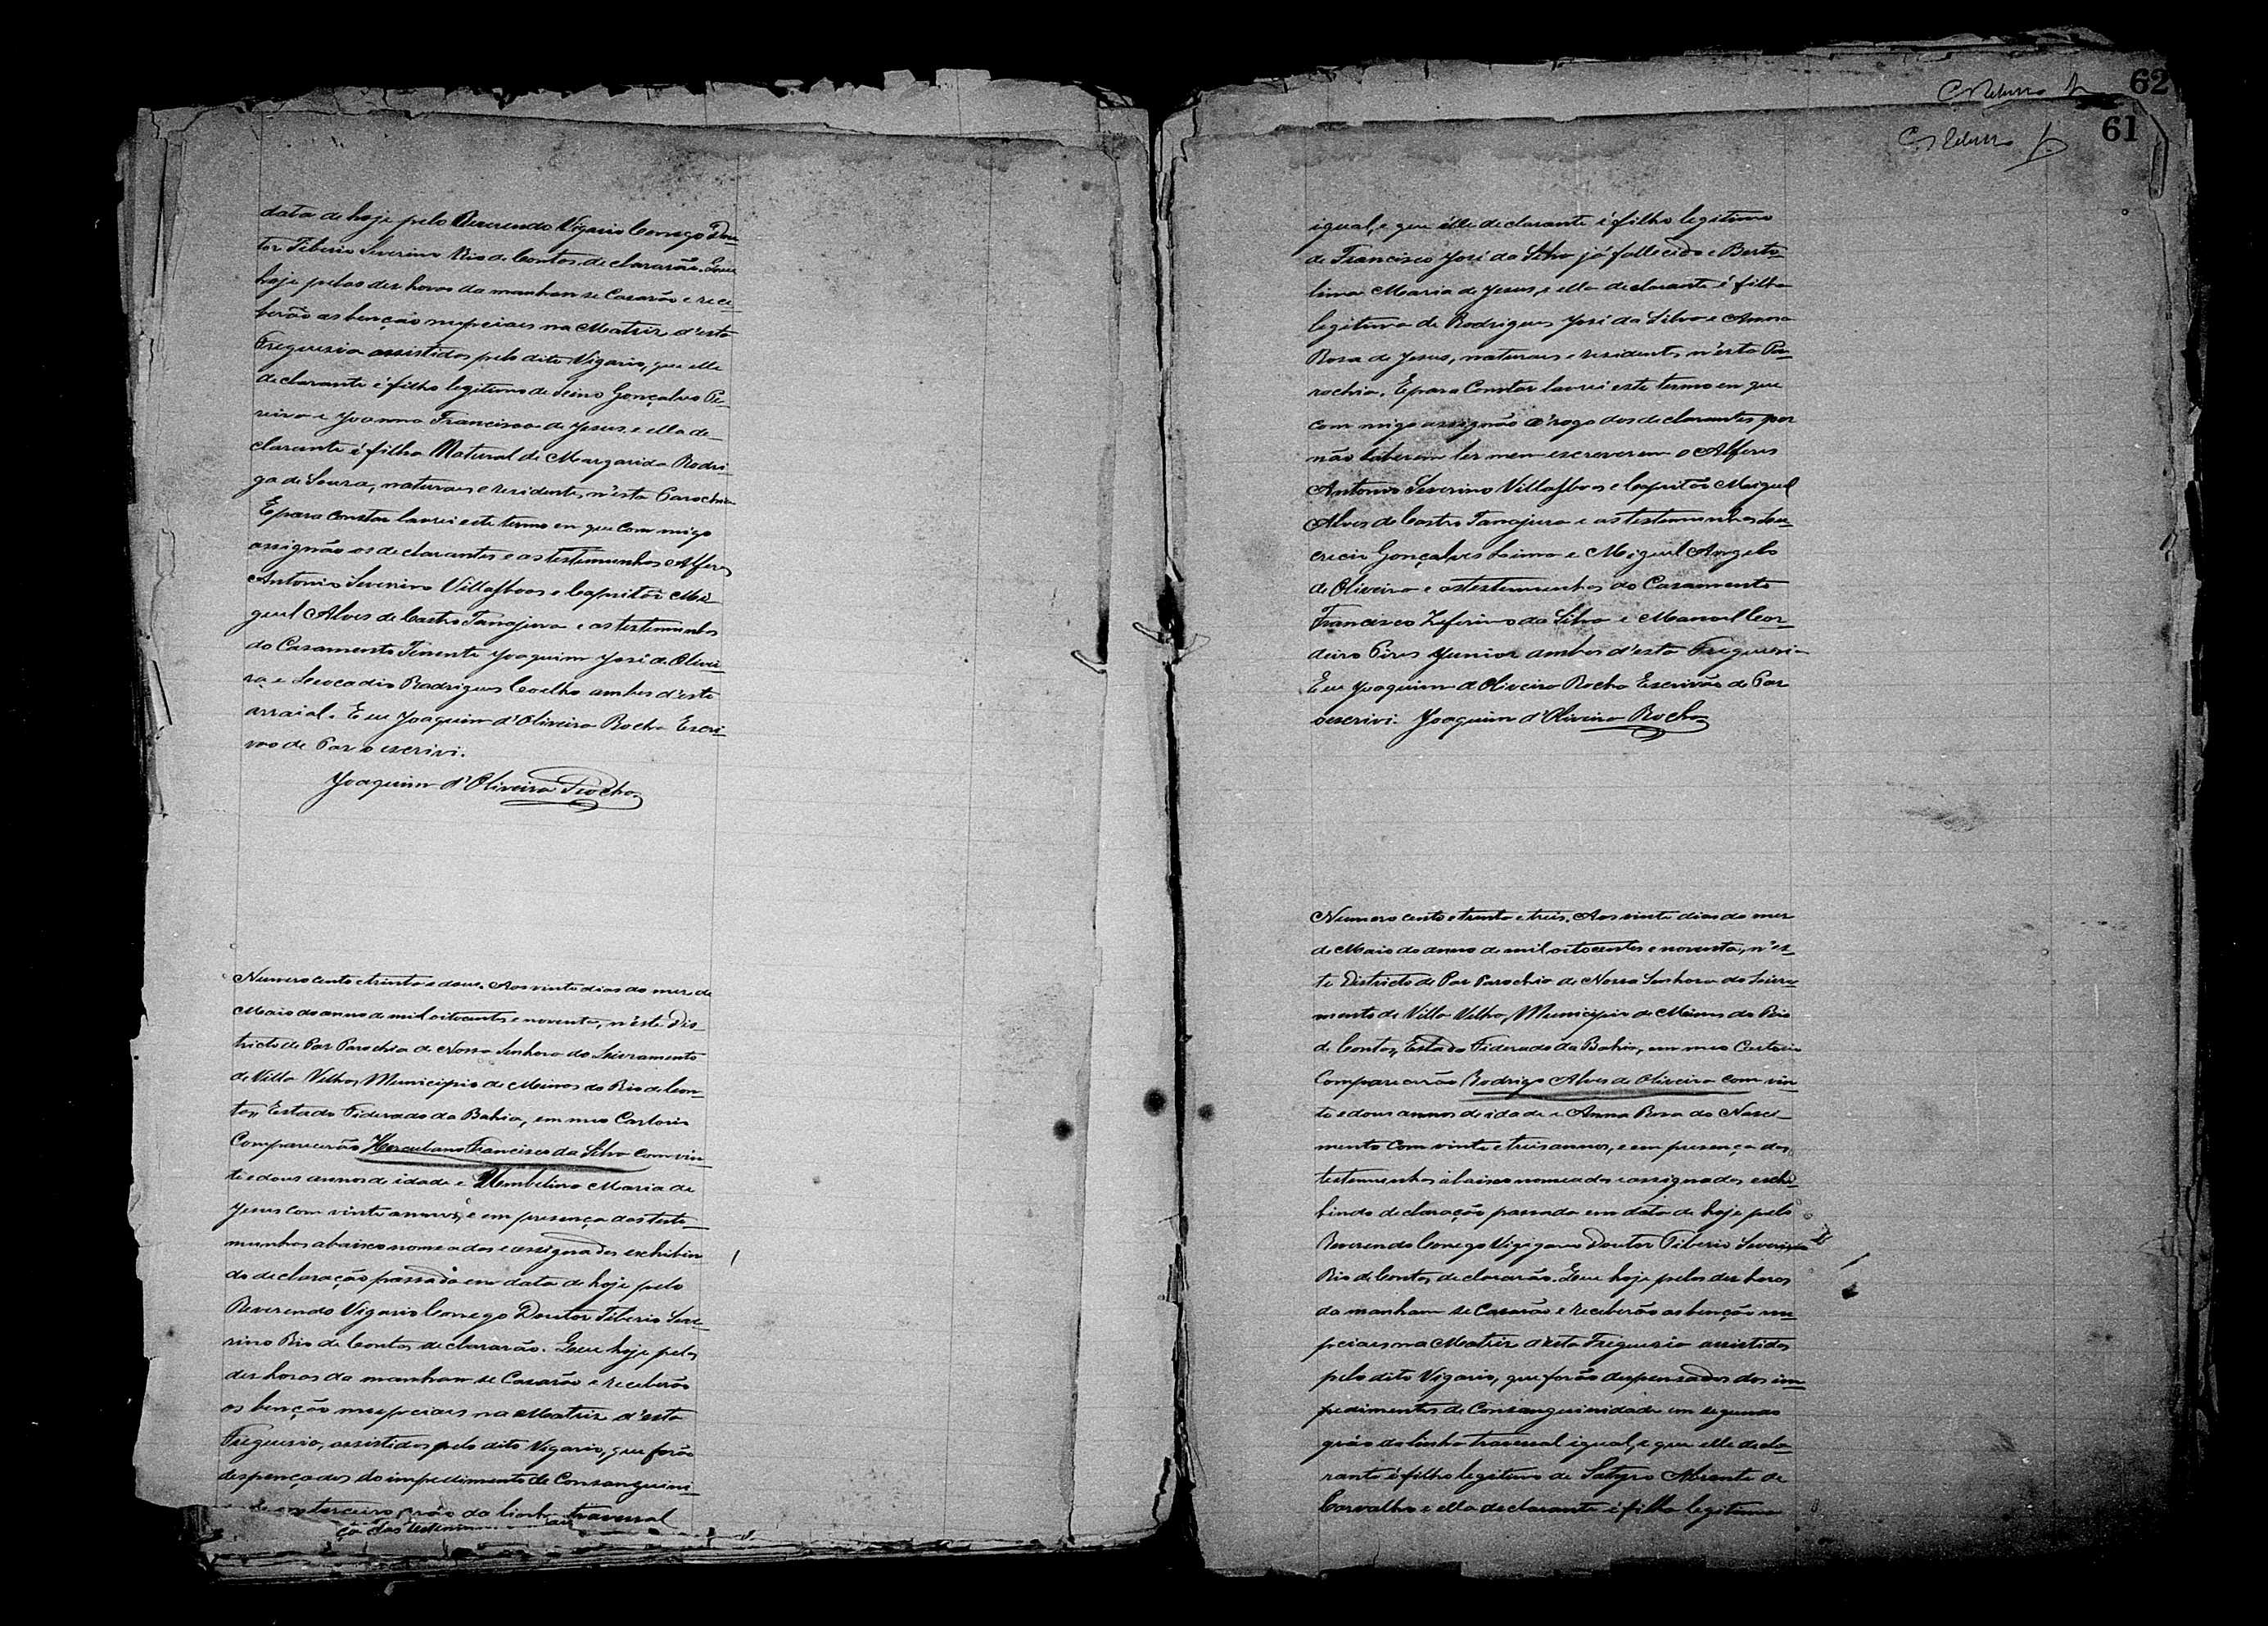 data de hoje pelo Reverendo Vigario Conego Dou-
tor Tiberio Severino Rio de Contas, declararão. Que
hoje pelas des horas da manham se Casarão e rece-
berão as benção nupciais na Matriz d'esta
Freguesia assistidos pelo dito Vigario, que elle
declarante é filho legitimo de Gonçalves Pe-
reira e Joanna Francisca de Jesus, e ella de-
clarante é filha Natural de Margarida Rodri-
ga de Souza, naturaes e residentes n'esta Parochia
E para constar lavrei este termo em que com migo
assignão os declarantes e as testemunhas Alferes
Antonio Severino Villasboas e Capitão Mi-
guel Alves de Castro Tanajura e as testemunhas
do Casamento Tenente Joaquim José de Olivei-
ra e Leocadio Rodrigues Coelho ambos d'este
arraial. Eu Joaquim d'Oliveira Rocha Escri-
vão de Paz o escrivi.
Joaquim d'Oliveira Rocha
Numero cento e trinta e dous. Aos vinte dias do mez de
Maio do anno de mil oitocentos e noventa, n'este Dis-
tricto de Paz Parochia de Nossa Senhora do Livramento
de Villa Velha, Municipio de Minas do Rio de Con-
tas, Estado Federado da Bahia, em meo Cartorio
Comparecerão Herculano Francisco da Silva com vin-
te e dous annos de idade e Umbelina Maria de
Jesus com vinte annos, e em presença das teste-
munhas abaixo nomeadas e assignadas exhibin-
do declaração passada em data de hoje pelo
Reverendo Vigario Conego Doutor Tiberio Seve-
rino Rio de Contas declararão. Que hoje pelas
des horas da manham se Casarão e receberão
as benção nupciais na Matriz d'esta
Freguesia, assistidos pelo dito Vigario, que forão
despençados do impedimento de Consanguini-
de em terceiro gráo da linha traversal
ça das testemu
62
61
igual, e que elle declarante é filho legitimo
de Francisco José da Silva já fallecido e Berto-
lina Maria de Jesus, e ella declarante é filha
legitima de Rodrigues José da Silva e Anna
Rosa de Jesus, naturaes e residentes n'esta Pa-
rochia. E para Constar lavrei este termo em que
com migo assignão a rogo dos declarantes por
não saberem ler nem escreverem o Alferes
Antonio Severino Villasboas e Capitão Miguel
Alves de Castro Tanajura e as testemunhas
Gonçalves Lima e Miguel Angelo
de Oliveira e as testemunhas do Casamento
Francisco Zeferino da Silva e Manoel Cor-
deiro Pires Junior ambos d'esta Freguesia
Eu Joaquim d'Oliveira Rocha Escrivão de Paz
o escrivi. Joaquim d'Oliveira Rocha
Numero cento e trinta e treis. Aos vinte dias do mez
de Maio do anno de mil oitocentos e noventa, n'es-
te Districto de Paz Parochia de Nossa Senhora do Livra-
mento de Villa Velha, Municipio de Minas do Rio
de Contas, Estado Federado da Bahia, em meo Cartorio
Comparecerão Rodrigo Alves de Oliveira com vin-
te e dous annos de idade e Anna Rosa do Nasci-
mento com vinte e treis annos, e em presença das
testemunhas abaixo nomeadas e assignadas exhi-
bindo declaração passada em data de hoje pelo
Reverendo Conego Vigigario Doutor Tiberio Severino
Rio de Contas, declararão. Que hoje pelas des horas
da manham se Casarão e receberão as benção nu-
pciaes na Matriz d'esta Freguesia assistidos
pelo dito Vigario, que forão dispensados dos im-
pedimentos de Consanguinidade em segundo
gráo da linha traversal igual, e que elle decla-
rante é filho legitimo de Satyro Abrante de
Carvalho e ella declarante é filha legitima